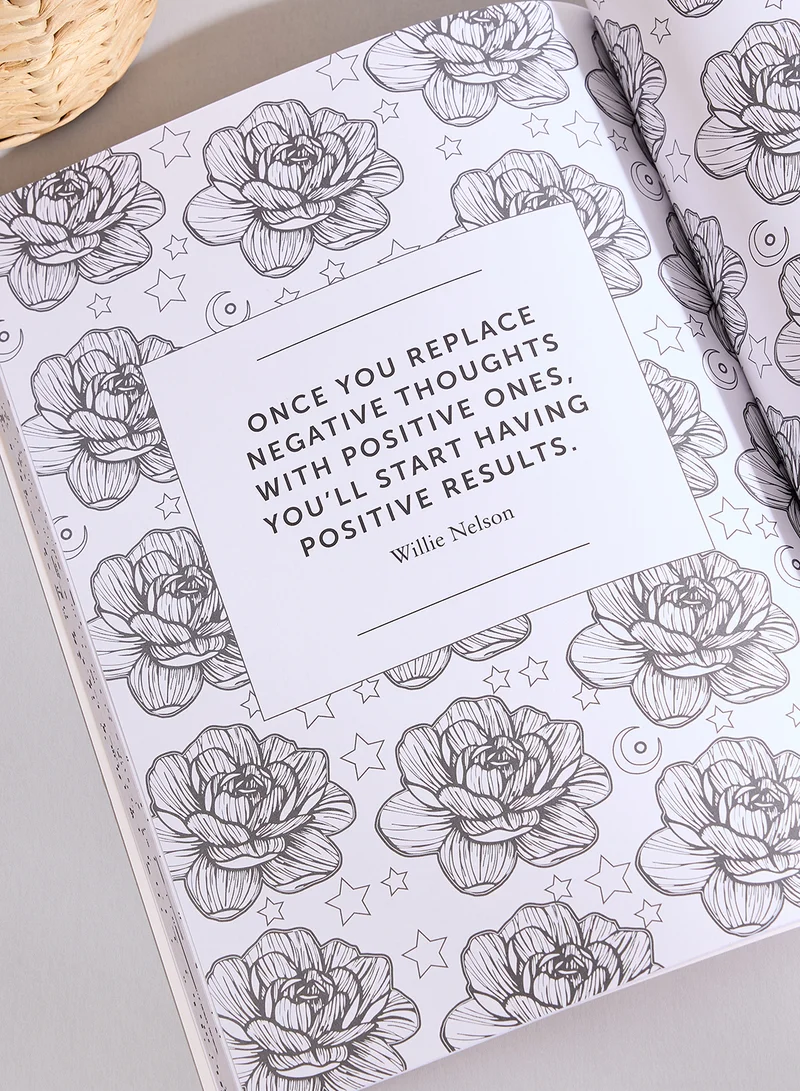 ONCE YOU REPLACE
NEGATIVE THOUGHTS
WITH POSITIVE ONES,
YOU'LL START HAVING
POSITIVE RESULTS.
Willie Nelson